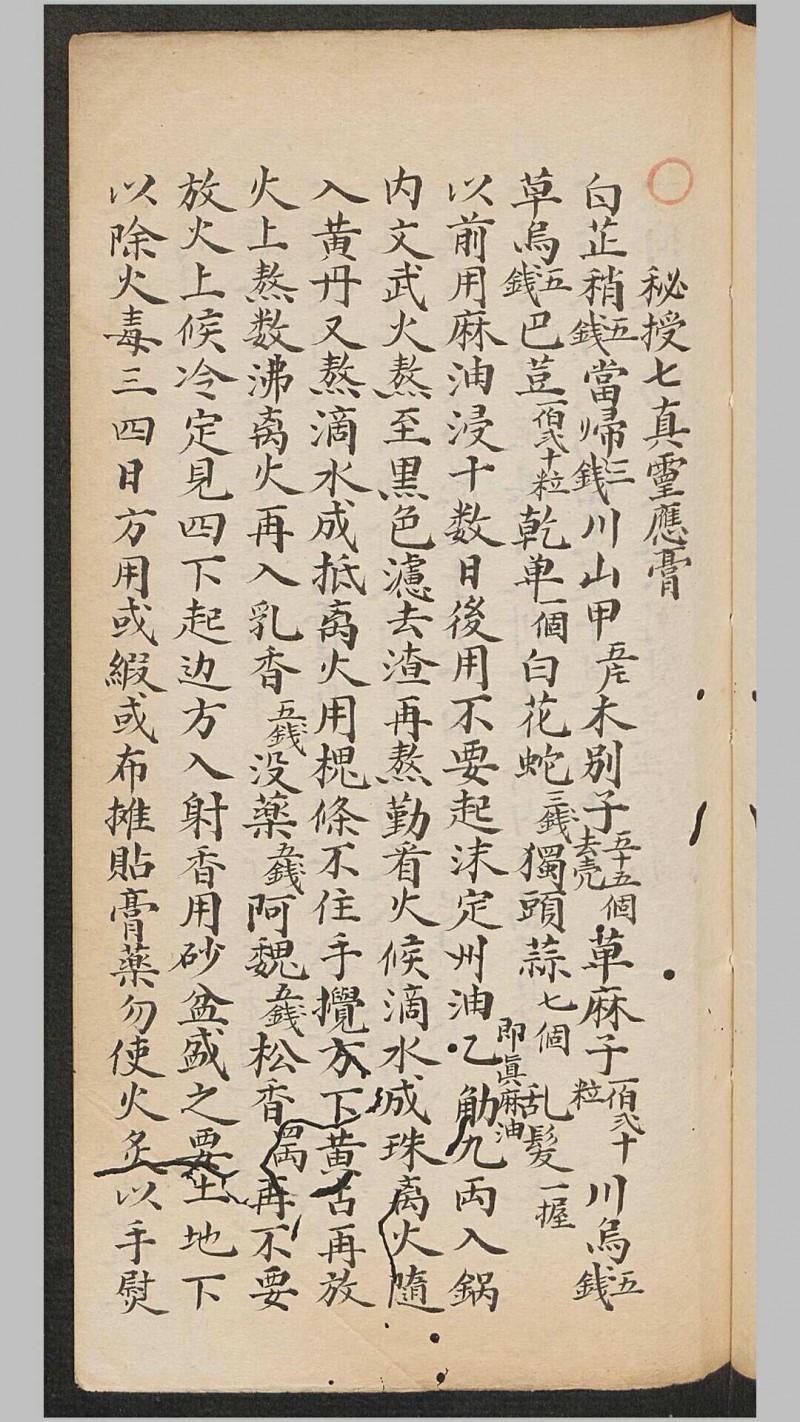 秘授七真靈應膏
白芷稍五錢當歸三錢川山甲五片木別子五十五個去壳草麻子一百弍十粒川烏五錢
草烏五錢巴荳一佰弍十粒乾单一個白花蛇三錢獨頭蒜七個乱髮一握
以前用麻油浸十数日後用不要起沫定州油即眞麻油乙觔九両入鍋
内文武火熬至黒色濾去渣再熬勤看火候滴水成珠离火隨
入黄丹又熬滴水成抵离火用槐條不住手攪方下黄古再放
火上熬数沸离火再入乳香五錢没薬五錢阿魏五錢松香四両再不要
放火上候冷定見四下起边方入射香用砂盆盛之要土地下
以除火毒三四日方用或緞或布摊貼膏薬勿使火炙以手熨